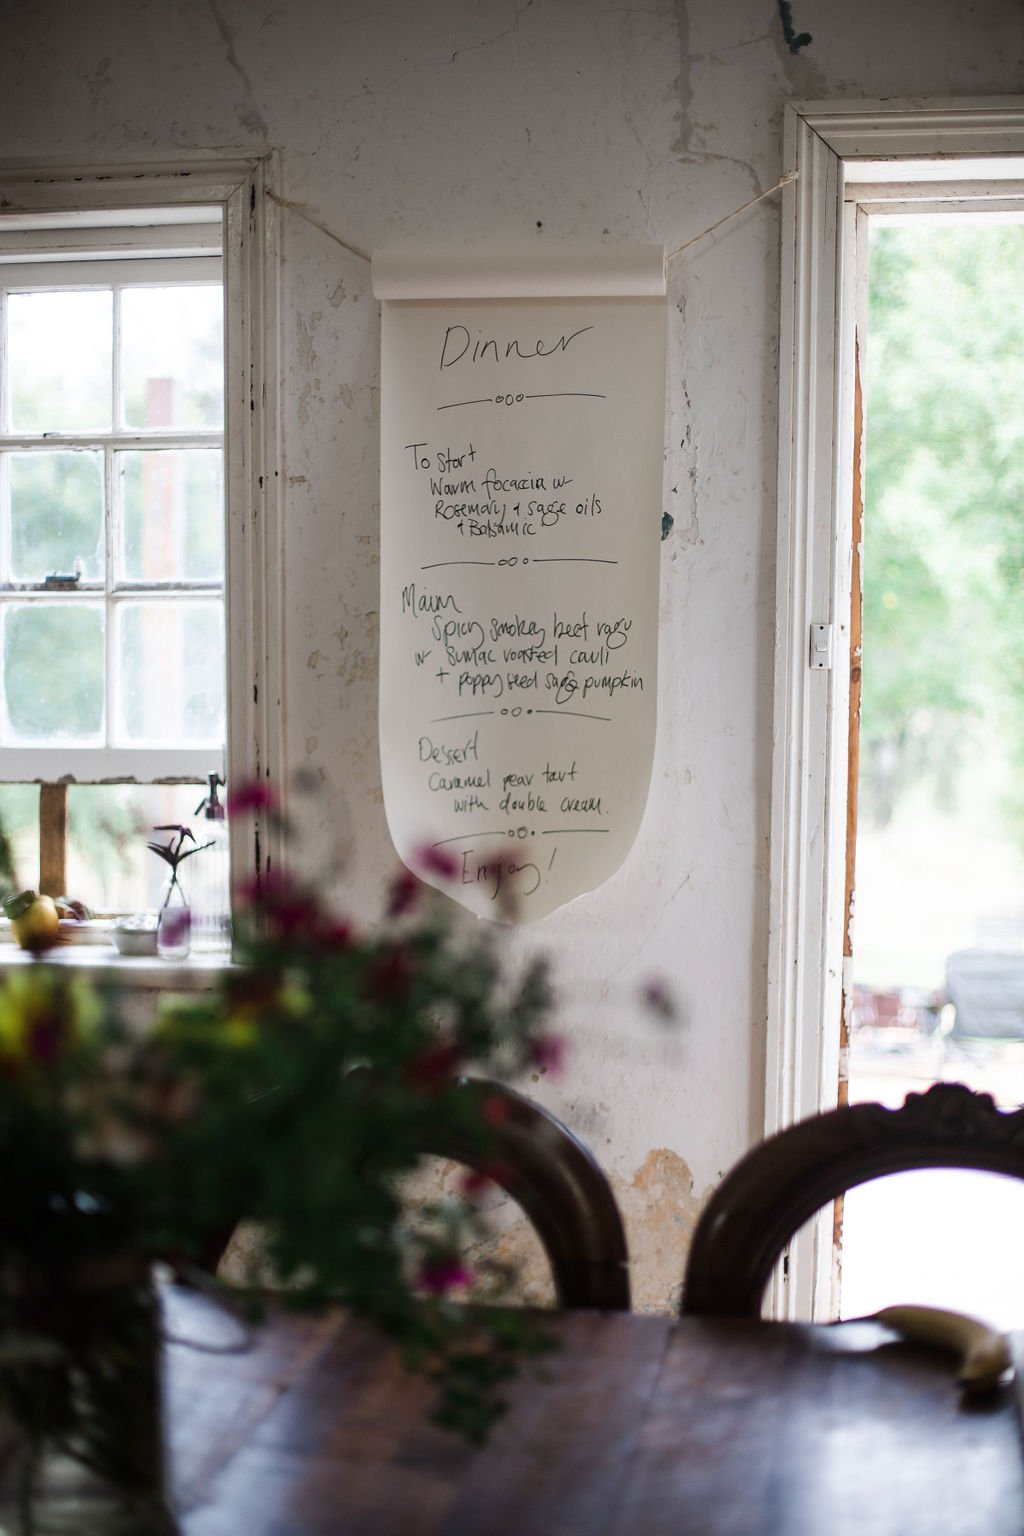 Dinner
To Start
Warm focaccia w
Rosemary + sage oils
+ Balsamic
Main
Spicy smokey beef ragu
w sumac roasted cauli
+ poppyseed sage pumpkin
Dessert
Caramel pear tart
with double cream.
Enjoy!